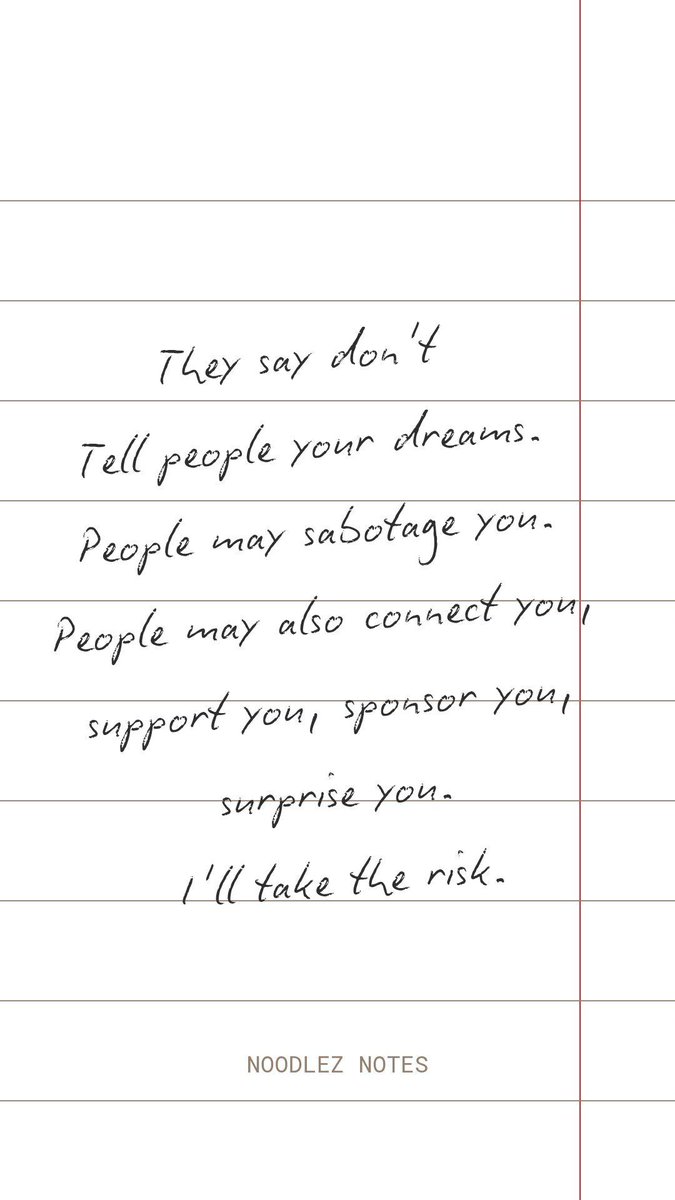 They say don't
Tell people your dreams.
People may sabotage you.
People may also connect you,
support you, sponsor you,
surprise you.
I'll take the risk.
NOODLEZ NOTES